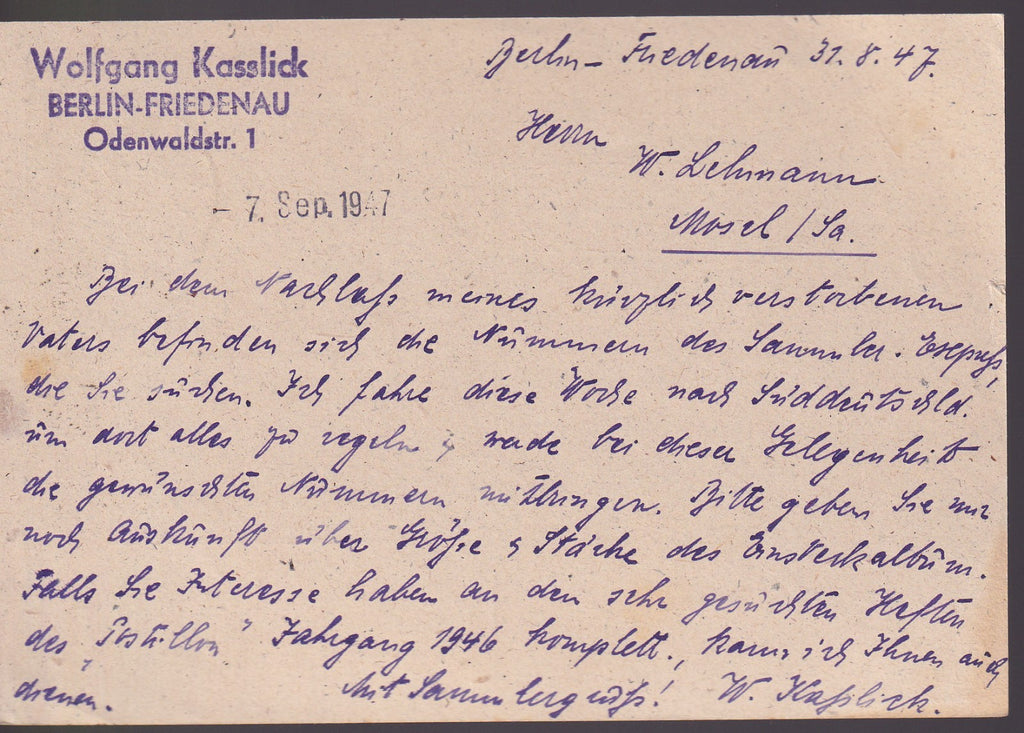 Wolfgang Kasslick
BERLIN-FRIEDENAU
Odenwaldstr. 1
Berlin-Friedenau 31.8.47.
Herrn
W. Lehmann
Mosel/Sa.
- 7. Sep. 1947
Bei dem Nachlaß meines kürzlich verstorbenen
Vaters befinden sich die Nummern des Sammler-
die Sie suchen. Ich fahre diese Woche nach Süddeutschld.
um dort alles zu regeln & werde bei dieser Gelegenheit
die gewünschten Nummern mitbringen. Bitte geben Sie mir
noch Auskunft über Größe & Stärke des Einsteckalbum.
Falls Sie Interesse haben an den sehr gesuchten Heften
des "Postillon" Jahrgang 1946 komplett, kann ich Ihnen auch
dienen. Mit Sammlergruß! W. Kaßlick.